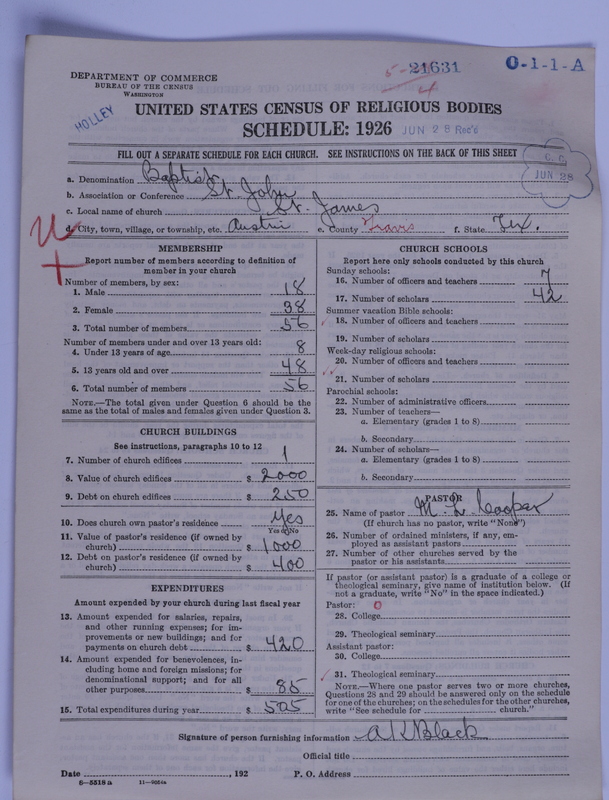 DEPARTMENT OF COMMERCE
BUREAU OF THE CENSUS
WASHINGTON
21631
O-1-1-A
HOLLEY
UNITED STATES CENSUS OF RELIGIOUS BODIES
SCHEDULE: 1926
JUN 28 Rec'd
FILL OUT A SEPARATE SCHEDULE FOR EACH CHURCH. SEE INSTRUCTIONS ON THE BACK OF THIS SHEET
C. C.
JUN 28
a. Denomination Baptist
b. Association or Conference St. John
c. Local name of church St. James
d. City, town, village, or township, etc. Austin e. County Travis f. State Tex.
MEMBERSHIP
Report number of members according to definition of
member in your church
Number of members, by sex:
1. Male 18
2. Female 38
3. Total number of members 56
Number of members under and over 13 years old:
4. Under 13 years of age 8
5. 13 years old and over 48
6. Total number of members 56
NOTE.—The total given under Question 6 should be the
same as the total of males and females given under Question 3.
CHURCH BUILDINGS
See instructions, paragraphs 10 to 12
7. Number of church edifices 1
8. Value of church edifices $ 2000
9. Debt on church edifices $ 250
10. Does church own pastor's residence Yes
Yes or No
11. Value of pastor's residence (if owned by
church) $ 1000
12. Debt on pastor's residence (if owned by
church) $ 400
EXPENDITURES
Amount expended by your church during last fiscal year
13. Amount expended for salaries, repairs,
and other running expenses; for im-
provements or new buildings; and for
payments on church debt $ 420
14. Amount expended for benevolences, in-
cluding home and foreign missions; for
denominational support; and for all
other purposes $ 85
15. Total expenditures during year $ 505
CHURCH SCHOOLS
Report here only schools conducted by this church
Sunday schools:
16. Number of officers and teachers 7
17. Number of scholars 42
Summer vacation Bible schools:
18. Number of officers and teachers
19. Number of scholars
Week-day religious schools:
20. Number of officers and teachers
21. Number of scholars
Parochial schools:
22. Number of administrative officers
23. Number of teachers—
a. Elementary (grades 1 to 8)
b. Secondary
24. Number of scholars—
a. Elementary (grades 1 to 8)
b. Secondary
PASTOR
25. Name of pastor M. L. Cooper
(If church has no pastor, write "None")
26. Number of ordained ministers, if any, em-
ployed as assistant pastors
27. Number of other churches served by the
pastor or his assistants
If pastor (or assistant pastor) is a graduate of a college or
theological seminary, give name of institution below. (If
not a graduate, write "No" in the space indicated.)
Pastor: O
28. College
29. Theological seminary
Assistant pastor:
30. College
31. Theological seminary
NOTE.—Where one pastor serves two or more churches,
Questions 28 and 29 should be answered only on the schedule
for one of the churches; on the schedules for the other churches,
write "See schedule for church."
Signature of person furnishing information A K Black
Official title
Date , 192 P. O. Address
8—5518a